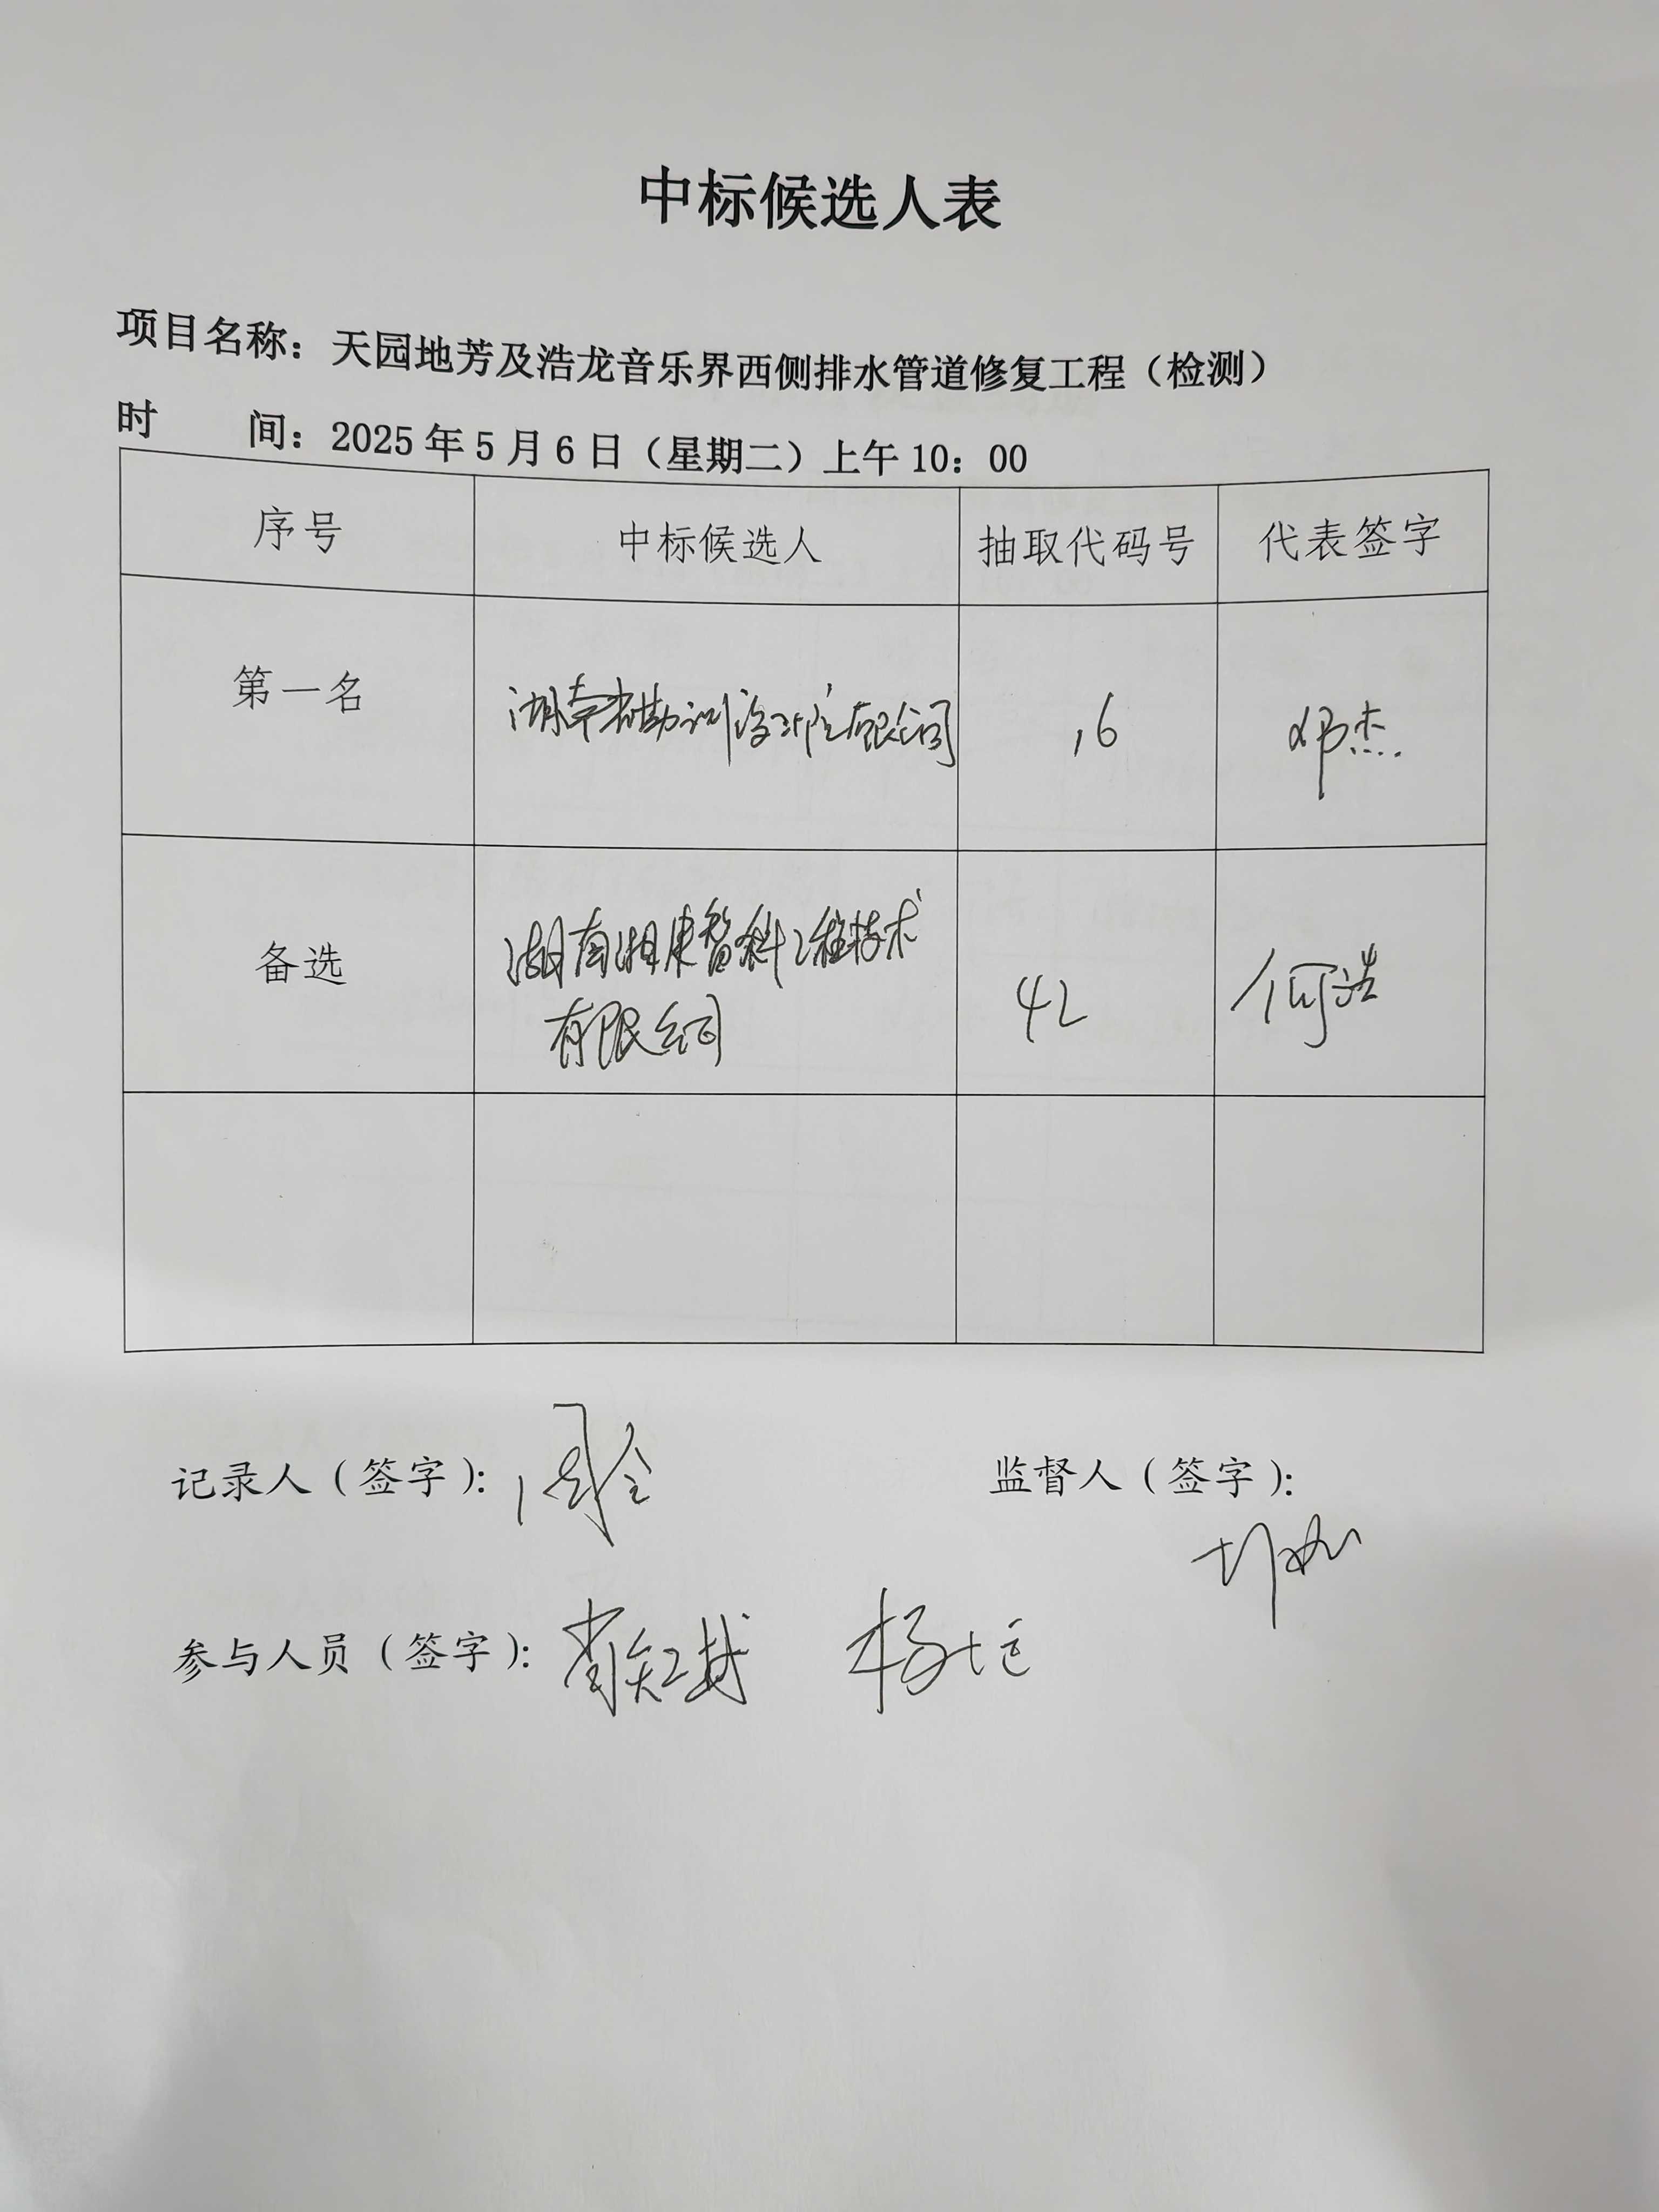 中标候选人表
项目名称：天园地芳及浩龙音乐界西侧排水管道修复工程（检测）
时 间：2025年5月6日（星期二）上午10：00
序号 中标候选人 抽取代码号 代表签字
第一名 湖南省勘测设计院有限公司 16 邓杰
备选 湖南湘康智科工程技术 42 何浩
有限公司
记录人（签字）： 监督人（签字）：
参与人员（签字）：